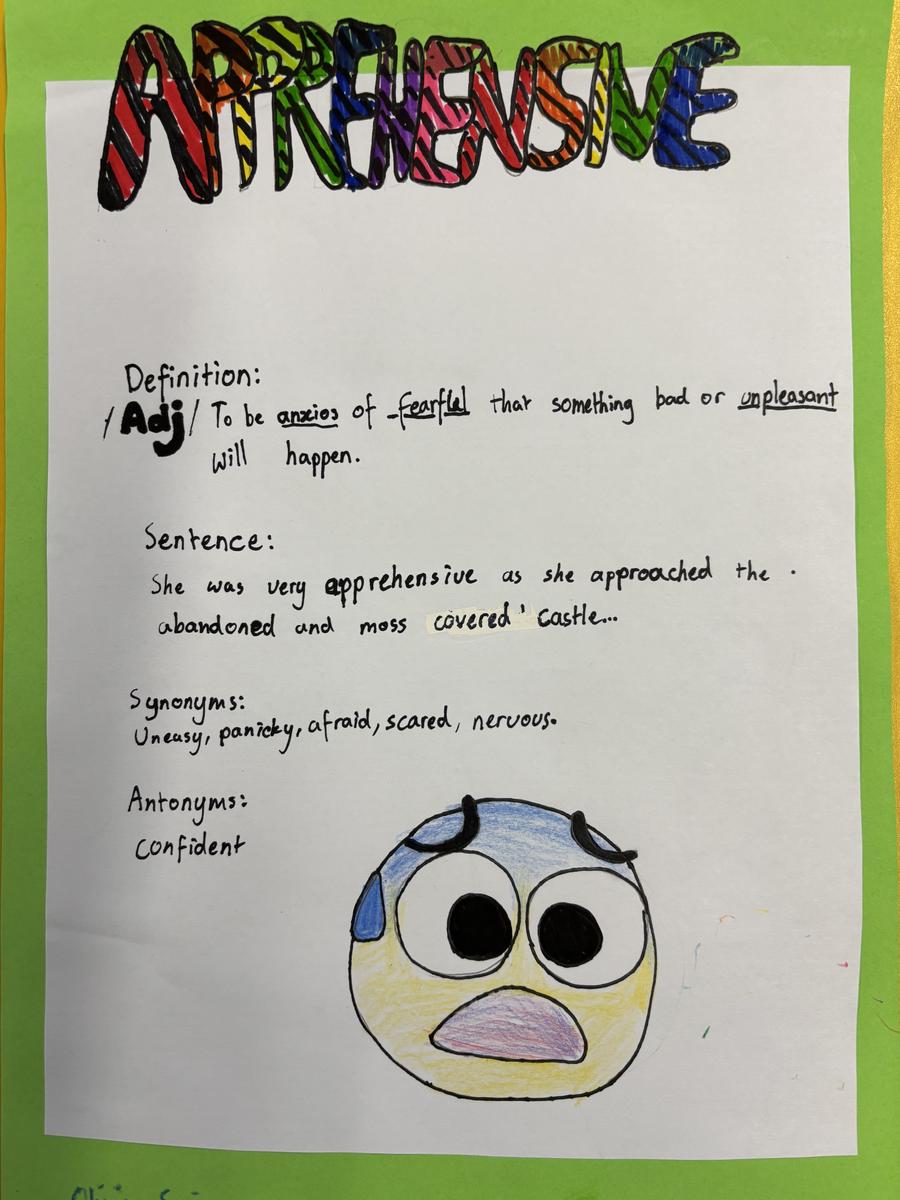 APPREHENSIVE
Definition:
/Adj/ To be anxios of fearful that something bad or unpleasant
will happen.
Sentence:
She was very apprehensive as she approached the .
abandoned and moss covered' castle...
Synonyms:
Uneasy, panicky, afraid, scared, nervous.
Antonyms:
confident